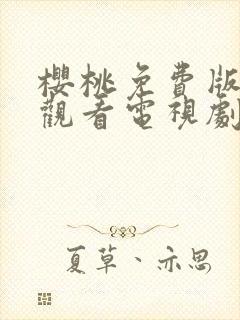 櫻桃免費版
觀看電視劇
夏草、亦思